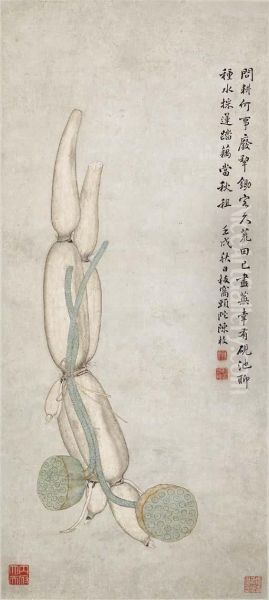 問耕何事廢犁鋤客久荒田已盡蕪幸有硯池聊
種水採蓮踏藕當秋租
壬戌秋日枝窩頭陀陳枚